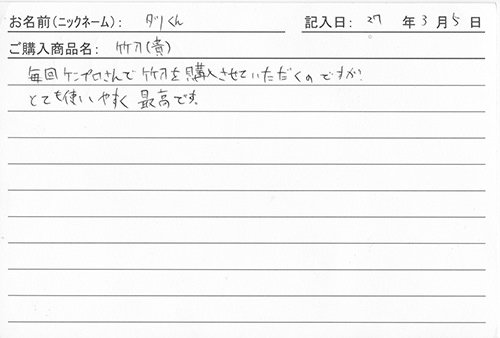 お名前(ニックネーム): ダリくん 記入日: 27 年 3 月 5 日
ご購入商品名: 竹刀(責)
毎回ケンプロさんで竹刀を購入させていただくのですが
とても使いやすく最高です。